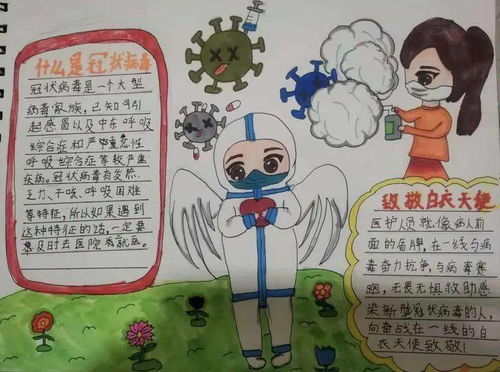 什么是冠状病毒
冠状病毒是一个大型
病毒家族，已知可引
起感冒以及中东呼吸
综合症和严重急性
呼吸综合症等较严重
疾病。冠状病毒有发热、
乏力、干咳、呼吸困难
等特征，所以如果遇到
这种特征的话，一定要
及时去医院就医。
致敬白衣天使
医护人员就像病人前
面的盾牌，在一线与病
毒奋力抗争，与病毒赛
跑，无畏无惧救助感
染新型冠状病毒的人，
向奋战在一线的白
衣天使致敬！